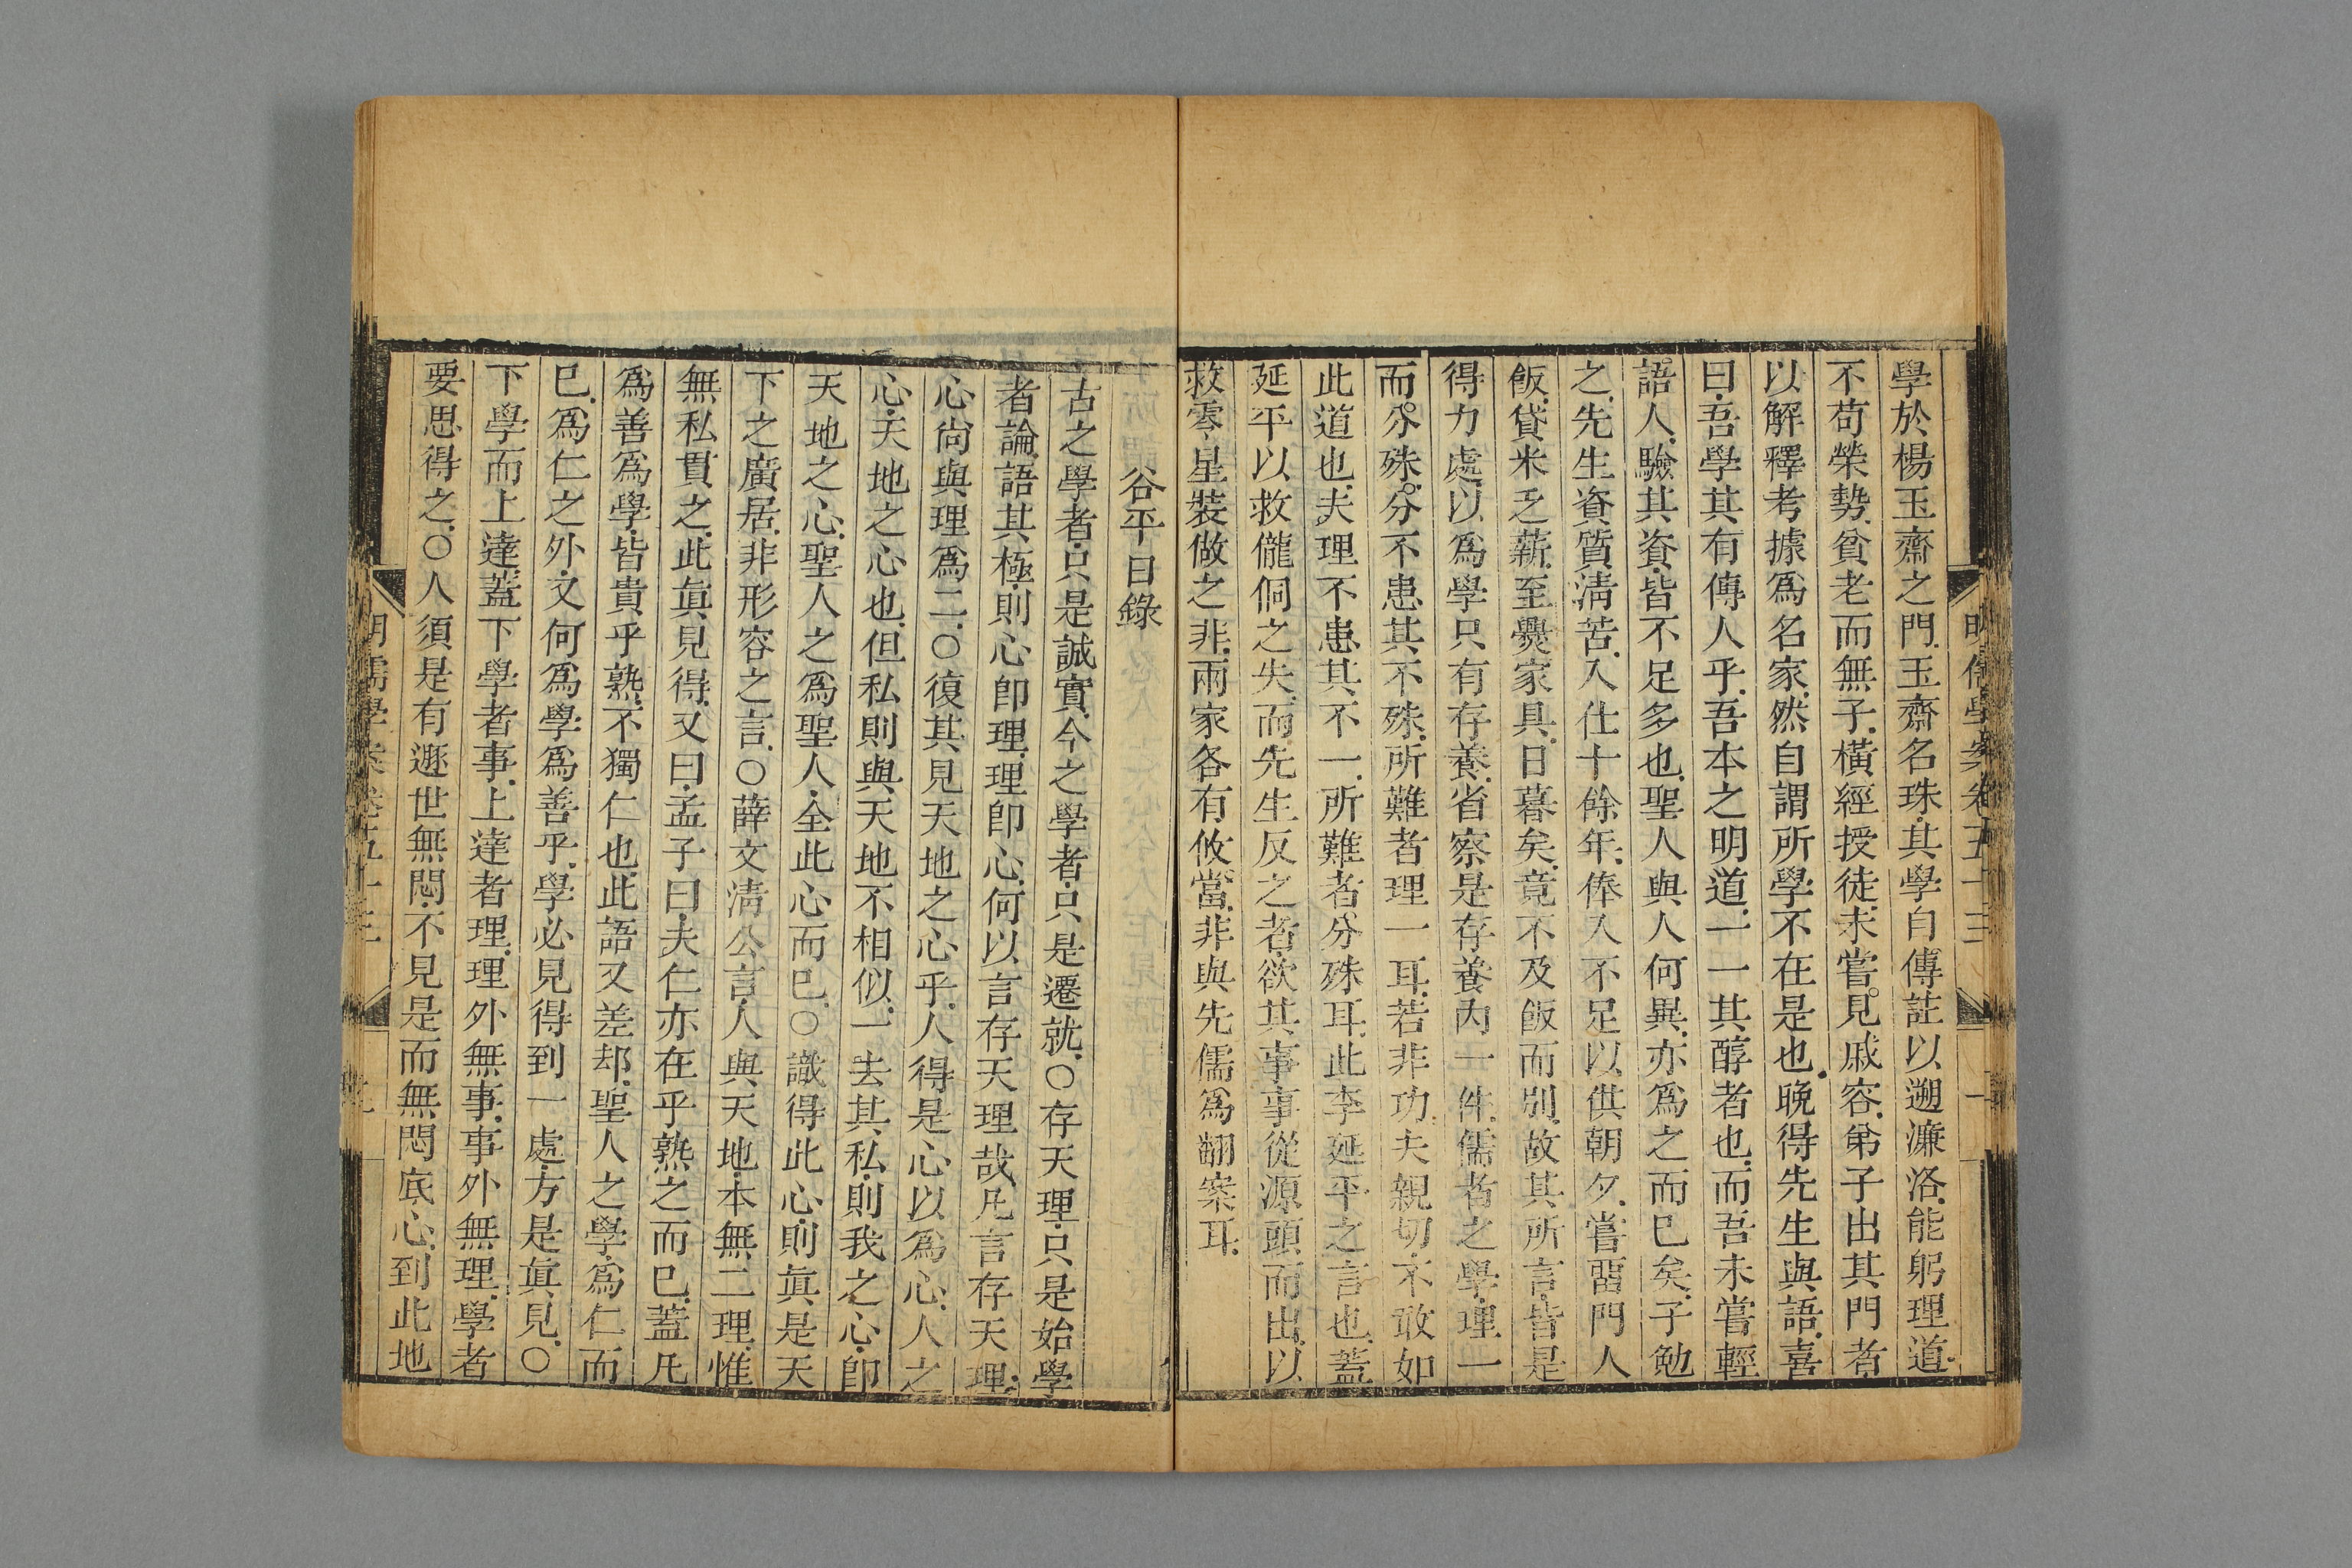 學於楊玉齋之門玉齋名珠其學自傳註以遡濂洛能躬理道
不苟榮勢貧老而無子橫經授徒未嘗見戚容弟子出其門者
以解釋考據爲名家然自謂所學不在是也晚得先生與語喜
曰吾學其有傳人乎吾本之明道一一其醇者也而吾未嘗輕
語人驗其資皆不足多也聖人與人何異亦爲之而已矣子勉
之先生資質淸苦入仕十餘年俸入不足以供朝夕嘗畱門人
飯貸米乏薪至爨家具日暮矣竟不及飯而別故其所言皆是
得力處以爲學只有存養省察是存養內一件儒者之學理一
而分殊分不患其不殊所難者理一耳若非功夫親切不敢如
此道也夫理不患其不一所難者分殊耳此李延平之言也蓋
延平以救儱侗之失而先生反之者欲其事事從源頭而出以
救零星裝做之非兩家各有攸當非與先儒爲翻案耳
明儒學案卷五十三 一
谷平日錄
古之學者只是誠實今之學者只是遷就〇存天理只是始學
者論語其極則心卽理理卽心何以言存天理哉凡言存天理
心尙與理爲二〇復其見天地之心乎人得是心以爲心人之
心天地之心也但私則與天地不相似一去其私則我之心卽
天地之心聖人之爲聖人全此心而已〇識得此心則眞是天
下之廣居非形容之言〇薛文淸公言人與天地本無二理惟
無私貫之此眞見得又曰孟子曰夫仁亦在乎熟之而已蓋凡
爲善爲學皆貴乎熟不獨仁也此語又差却聖人之學爲仁而
已爲仁之外又何爲學爲善乎學必見得到一處方是眞見〇
下學而上達蓋下學者事上達者理理外無事事外無理學者
要思得之〇人須是有遯世無悶不見是而無悶底心到此地
明儒學案卷五十三